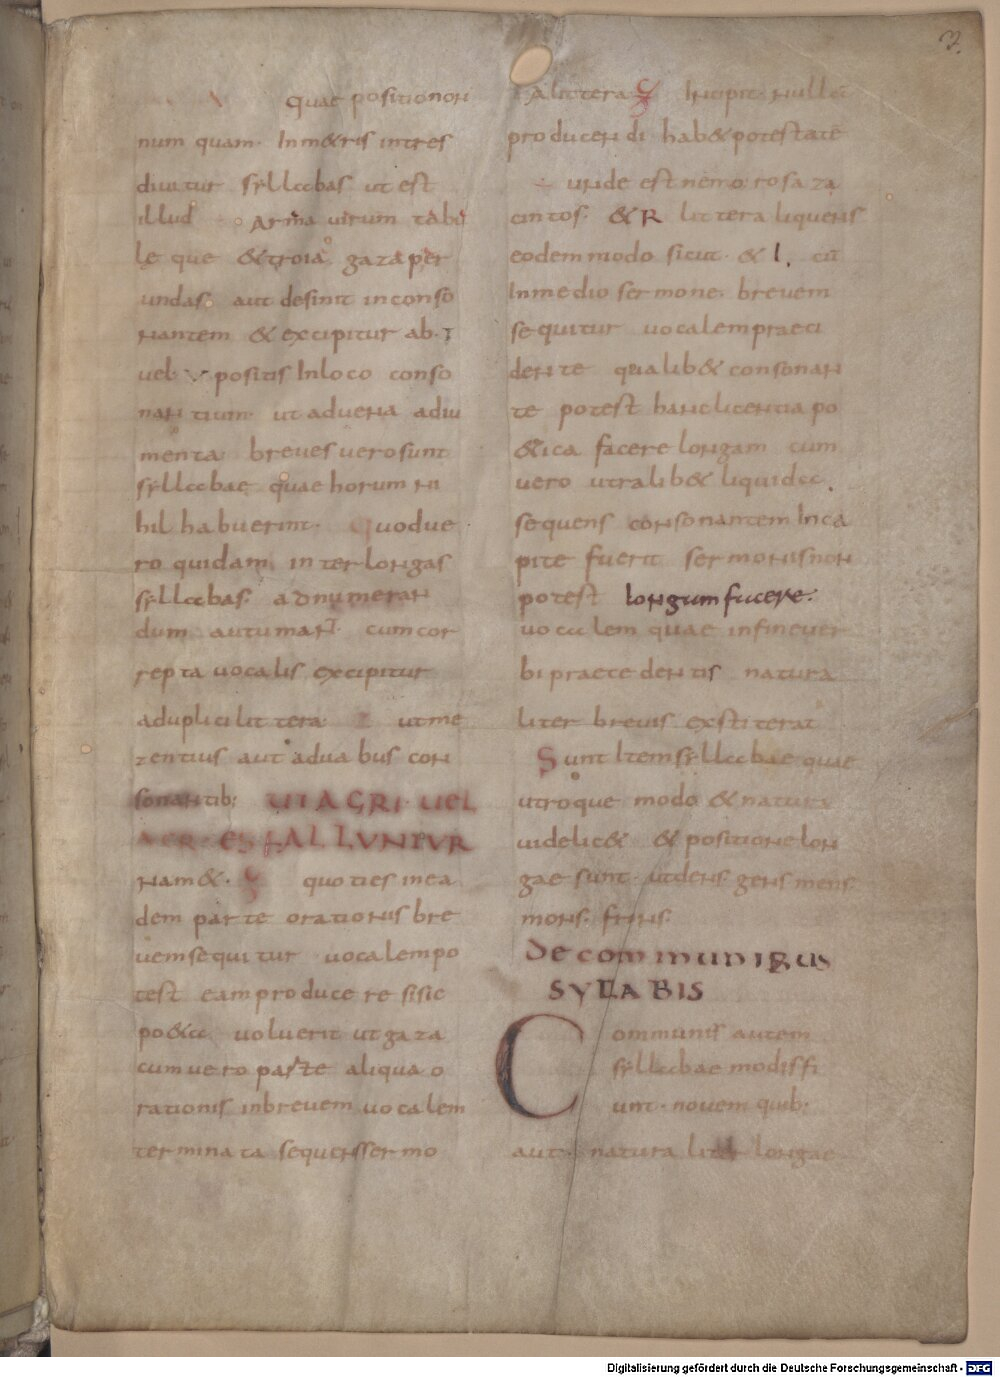 quae positionon
num quam. In metris intres
diuitur syllabas ut est
illud Arma uirum tabu
lę que & troia gaza per
undas. aut desinit inconso
nantem & excipitur ab. i
uel. u positis Inloco conso
nantium. ut aduena adiu
menta. breues uero sunt
syllabae quae horum ni
hil habuerint. Quodue
ro quidam inter longas
syllabas. adnumeran
dum autumant. cumcor
repta uocalis excipitur
aduplici littera z ut me
zentius aut aduabus con
sonantib;
UEL
FALLUNTUR
Nam &. z quoties inea
dem parte orationis bre
uem sequitur uocalem po
test eam producere sisic
poeta uoluerit ut gaza
cum uero parte aliqua o
rationis inbreuem uocalem
terminata sequens sermo
A littera z Incipit. nullā
producendi hab& potestatē
unde est nemorosa za
cintos. & R littera liquens
eodem modo sicut. & l. cū
Inmedio sermone. breuem
sequitur uocalem praece
dente qualib& consonan
te potest hanc licentia po
&ica facere longam cum
uero utralib& liquida.
sequens consonantem Inca
pite fuerit sermonis non
potest longum facere.
uocalem quae infine uer
bi praecedentis natura
liter breuis exstiterat
Sunt Item syllabae quae
utroque modo & natura
uidelic& & positione lon
gae sunt. ut dens. gens mens.
mons. fons.
De communibus
SYLABIS
Communis autem
syllabae modis fi
unt. nouem quib;
aut. natura liter longae
Digitalisierung gefördert durch die Deutsche Forschungsgemeinschaft - DFG